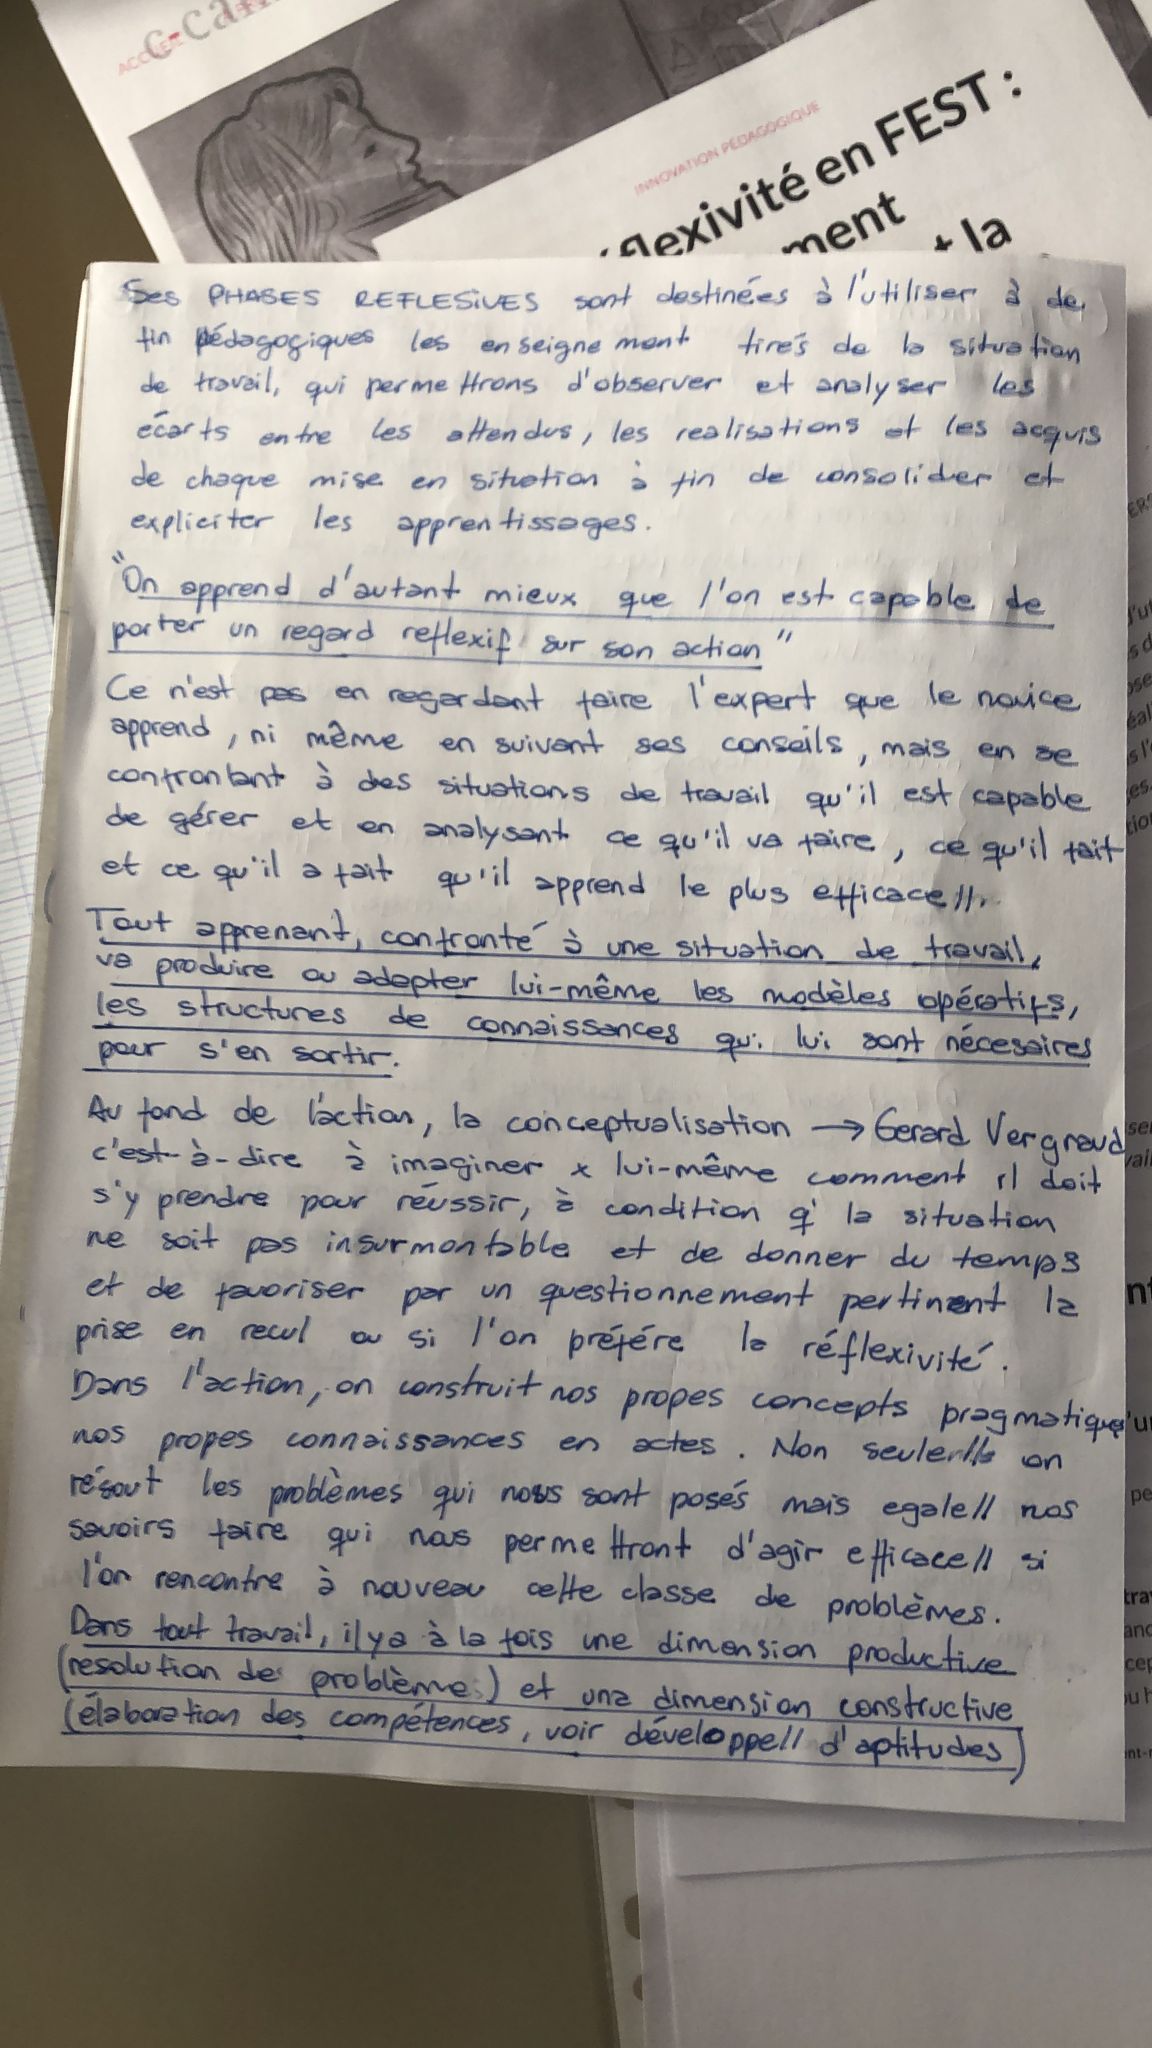 ACCUEIL
c-ca
INNOVATION PÉDAGOGIQUE
flexivité en FEST :
ment
t la
Ses PHASES REFLESIVES sont destinées à l'utiliser à de
fin pédagogiques les enseignement tirés de la situation
de travail, qui permettrons d'observer et analyser les
écarts entre les attendus, les realisations et les acquis
de chaque mise en situation à fin de consolider et
expliciter les apprentissages.
"On apprend d'autant mieux que l'on est capable de
porter un regard reflexif sur son action"
Ce n'est pas en regardant faire l'expert que le novice
apprend, ni même en suivant ses conseils, mais en se
confrontant à des situations de travail qu'il est capable
de gérer et en analysant ce qu'il va faire, ce qu'il fait
et ce qu'il a fait qu'il apprend le plus efficace//.
Tout apprenant, confronté à une situation de travail,
va produire ou adapter lui-même les modèles opératifs,
les structures de connaissances qui lui sont nécesaires
pour s'en sortir.
Au fond de l'action, la conceptualisation → Gerard Vergnaud
c'est-à-dire à imaginer x lui-même comment il doit
s'y prendre pour réussir, à condition q' la situation
ne soit pas insurmontable et de donner du temps
et de favoriser par un questionnement pertinent la
prise en recul ou si l'on préfére la réflexivité.
Dans l'action, on construit nos propes concepts pragmatiques
nos propes connaissances en actes. Non seule// on
résout les problèmes qui nous sont posés mais egale// nos
savoirs faire qui nous permettront d'agir efficace// si
l'on rencontre à nouveau cette classe de problèmes.
Dans tout travail, il y a à la fois une dimension productive
(resolution de problèmes) et une dimension constructive
(élaboration des compétences, voir développe// d'aptitudes)